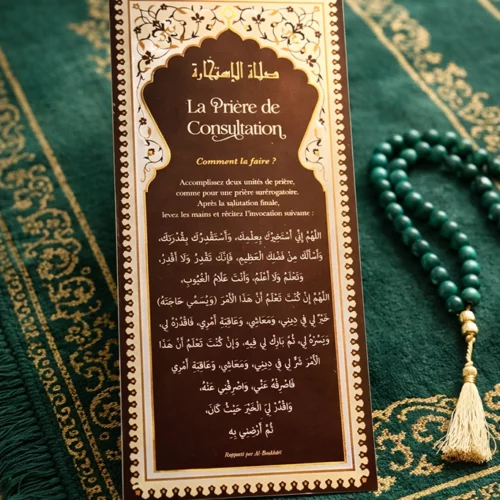 صلاة الإستخارة
La Prière de
Consultation
Comment la faire ?
Accomplissez deux unités de prière,
comme pour une prière surérogatoire.
Après la salutation finale,
levez les mains et récitez l'invocation suivante :
اللَّهُمَّ إِنِّي أَسْتَخِيرُكَ بِعِلْمِكَ، وَأَسْتَقْدِرُكَ بِقُدْرَتِكَ،
وَأَسْأَلُكَ مِنْ فَضْلِكَ الْعَظِيمِ، فَإِنَّكَ تَقْدِرُ وَلَا أَقْدِرُ،
وَتَعْلَمُ وَلَا أَعْلَمُ، وَأَنْتَ عَلَّامُ الْغُيُوبِ،
اللَّهُمَّ إِنْ كُنْتَ تَعْلَمُ أَنَّ هَذَا الْأَمْرَ (وَيُسَمِّي حَاجَتَهُ)
خَيْرٌ لِي فِي دِينِي، وَمَعَاشِي، وَعَاقِبَةِ أَمْرِي، فَاقْدُرْهُ لِي،
وَيَسِّرْهُ لِي، ثُمَّ بَارِكْ لِي فِيهِ، وَإِنْ كُنْتَ تَعْلَمُ أَنَّ هَذَا
الْأَمْرَ شَرٌّ لِي فِي دِينِي، وَمَعَاشِي، وَعَاقِبَةِ أَمْرِي
فَاصْرِفْهُ عَنِّي، وَاصْرِفْنِي عَنْهُ،
وَاقْدُرْ لِيَ الْخَيْرَ حَيْثُ كَانَ،
ثُمَّ أَرْضِنِي بِهِ
Rapporté par Al-Boukhâri